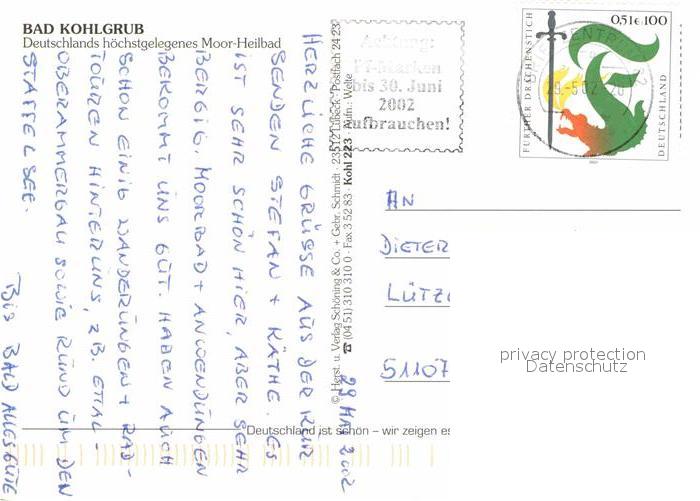 BAD KOHLGRUB
Deutschlands höchstgelegenes Moor-Heilbad
29 MAI 2002
HERZLICHE GRÜSSE AUS DER KUR
SENDEN STEFAN + KÄTHE. ES
IST SEHR SCHÖN HIER, ABER SEHR
BERGIG. MOORBAD + ANWENDUNGEN
BEKOMMT UNS GUT. HABEN AUCH
SCHON EINIG WANDERUNGEN + RAD-
TOUREN HINTER UNS, ZB. ETTAL-
OBERAMMERGAU SOWIE RUND UM DEN
STAFFELSEE.
BIS BALD ALLES GUTE
© Herst. u. Verlag Schöning & Co. + Gebr. Schmidt · 23512 Lübeck · Postfach 24 23
☎ (04 51) 310 310 0 · Fax 3 52 83 · Kohl 223 Aufn.: Welte
Achtung:
PT-Marken
bis 30. Juni
2002
aufbrauchen!
0,51€ 100
FURTHER DRACHENSTICH
DEUTSCHLAND
BRIEFZENTRUM
29.-5.02
AN
DIETER
LÜTZ
51107
privacy protection
Datenschutz
Deutschland ist schön – wir zeigen es